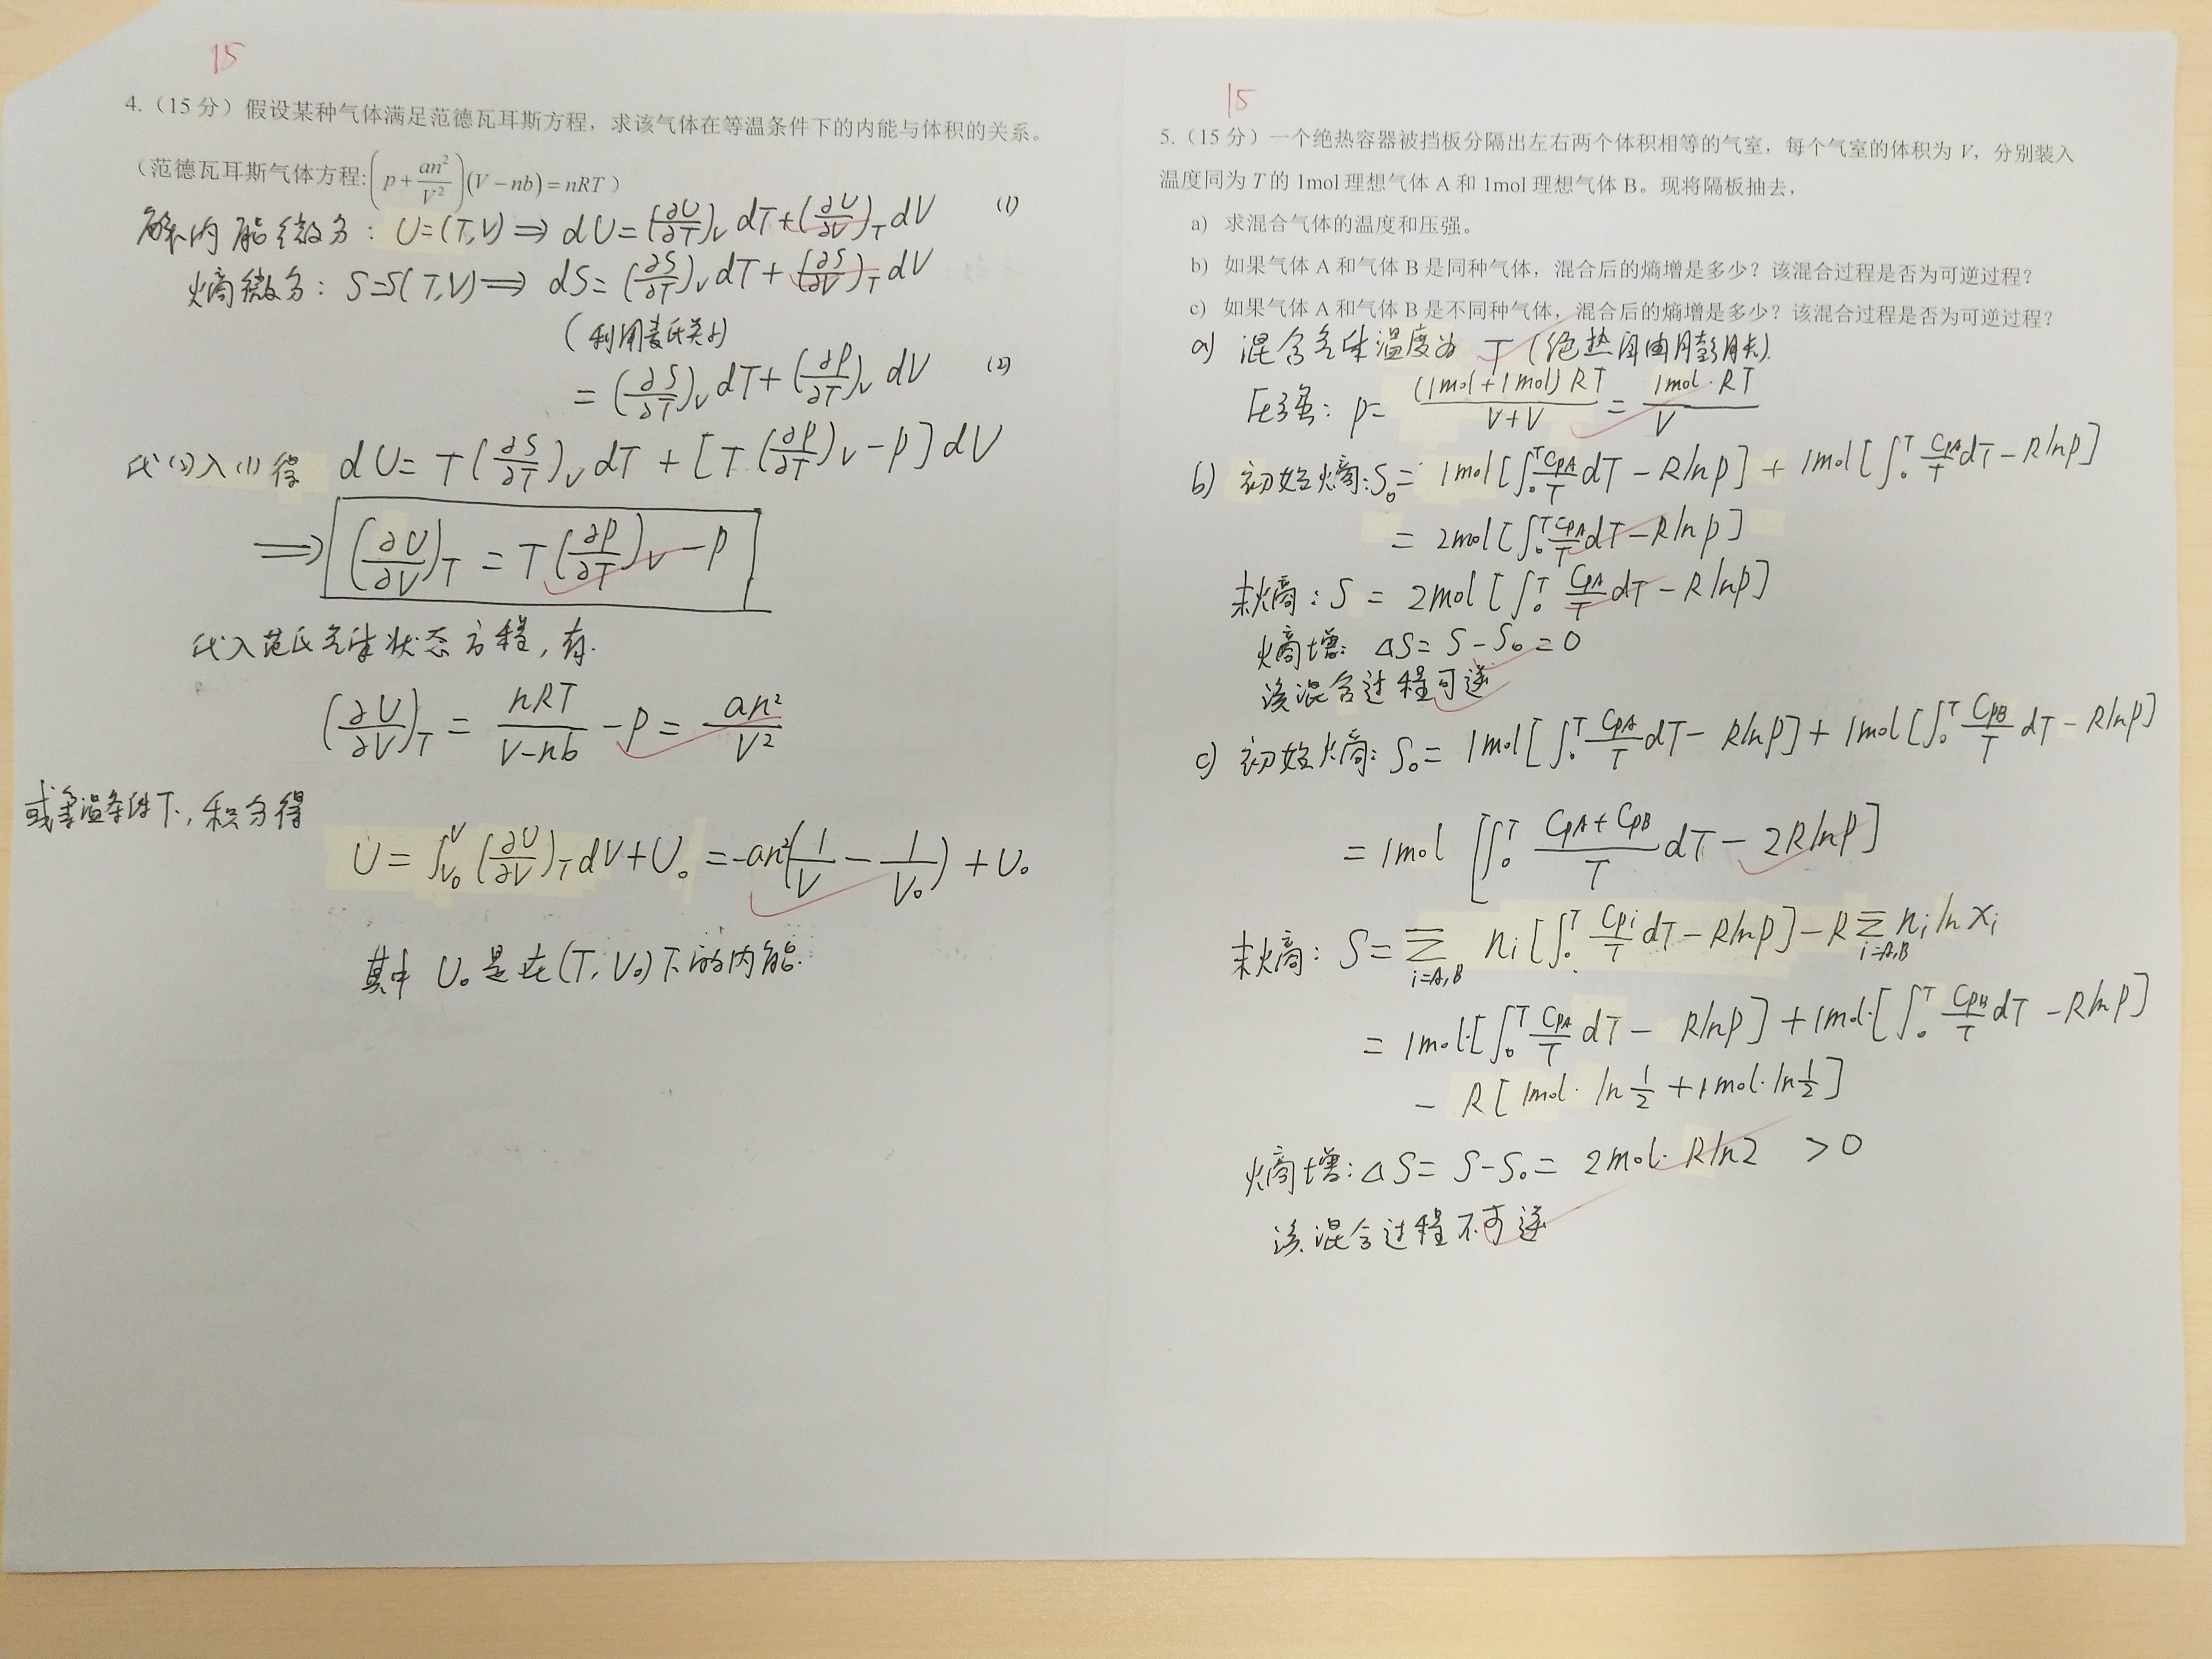 15
4.（15 分）假设某种气体满足范德瓦耳斯方程，求该气体在等温条件下的内能与体积的关系。
（范德瓦耳斯气体方程:(p+an²/V²)(V−nb)=nRT）
解: 内能微分：U=(T,V) ⇒ dU=(∂U/∂T)_V dT+(∂U/∂V)_T dV (1)
熵微分：S=S(T,V) ⇒ dS=(∂S/∂T)_V dT+(∂S/∂V)_T dV
(利用麦氏关系)
=(∂S/∂T)_V dT+(∂p/∂T)_V dV (2)
代(2)入(1)得 dU=T(∂S/∂T)_V dT+[T(∂p/∂T)_V−p]dV
⇒ (∂U/∂V)_T=T(∂p/∂T)_V−p
代入范氏气体状态方程，有.
(∂U/∂V)_T=nRT/(V−nb)−p=an²/V²
等温条件下，积分得
U=∫_{V₀}^{V}(∂U/∂V)_T dV+U₀=-an²(1/V−1/V₀)+U₀
其中 U₀ 是在(T,V₀)下的内能.
15
5.（15 分）一个绝热容器被挡板分隔出左右两个体积相等的气室，每个气室的体积为 V，分别装入
温度同为 T 的 1mol 理想气体 A 和 1mol 理想气体 B。现将隔板抽去，
a) 求混合气体的温度和压强。
b) 如果气体 A 和气体 B 是同种气体，混合后的熵增是多少？该混合过程是否为可逆过程？
c) 如果气体 A 和气体 B 是不同种气体，混合后的熵增是多少？该混合过程是否为可逆过程？
a) 混合气体温度为 T (绝热自由膨胀).
压强：p=(1mol+1mol)RT/(V+V)=1mol·RT/V
b) 初始熵:S₀=1mol[∫₀ᵀ C_pA/T dT−Rlnp]+1mol[∫₀ᵀ C_pA/T dT−Rlnp]
=2mol[∫₀ᵀ C_pA/T dT−Rlnp]
末熵：S=2mol[∫₀ᵀ C_pA/T dT−Rlnp]
熵增：ΔS=S−S₀=0
该混合过程可逆
c) 初始熵：S₀=1mol[∫₀ᵀ C_pA/T dT−Rlnp]+1mol[∫₀ᵀ C_pB/T dT−Rlnp]
=1mol[∫₀ᵀ (C_pA+C_pB)/T dT−2Rlnp]
末熵：S=Σ_{i=A,B} n_i[∫₀ᵀ C_pi/T dT−Rlnp]−RΣ_{i=A,B} n_i ln x_i
=1mol·[∫₀ᵀ C_pA/T dT−Rlnp]+1mol·[∫₀ᵀ C_pB/T dT−Rlnp]
−R[1mol·ln 1/2+1mol·ln 1/2]
熵增：ΔS=S−S₀=2mol·Rln2 >0
该混合过程不可逆